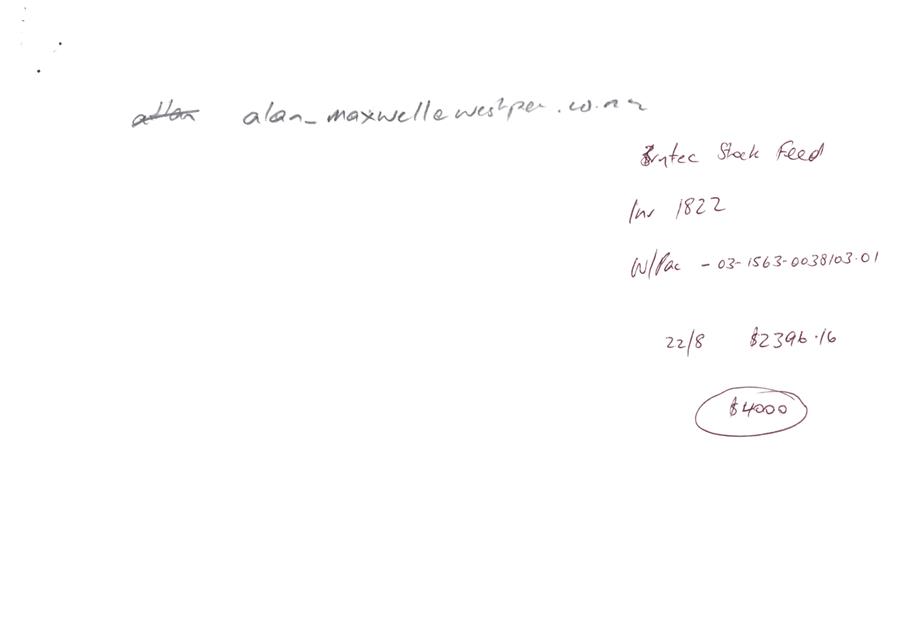 allan alan_maxwell@westpac.co.nz
Syntec Stock Feed
Inv 1822
W/Pac - 03-1563-0038103.01
22/8 $2396.16
$4000